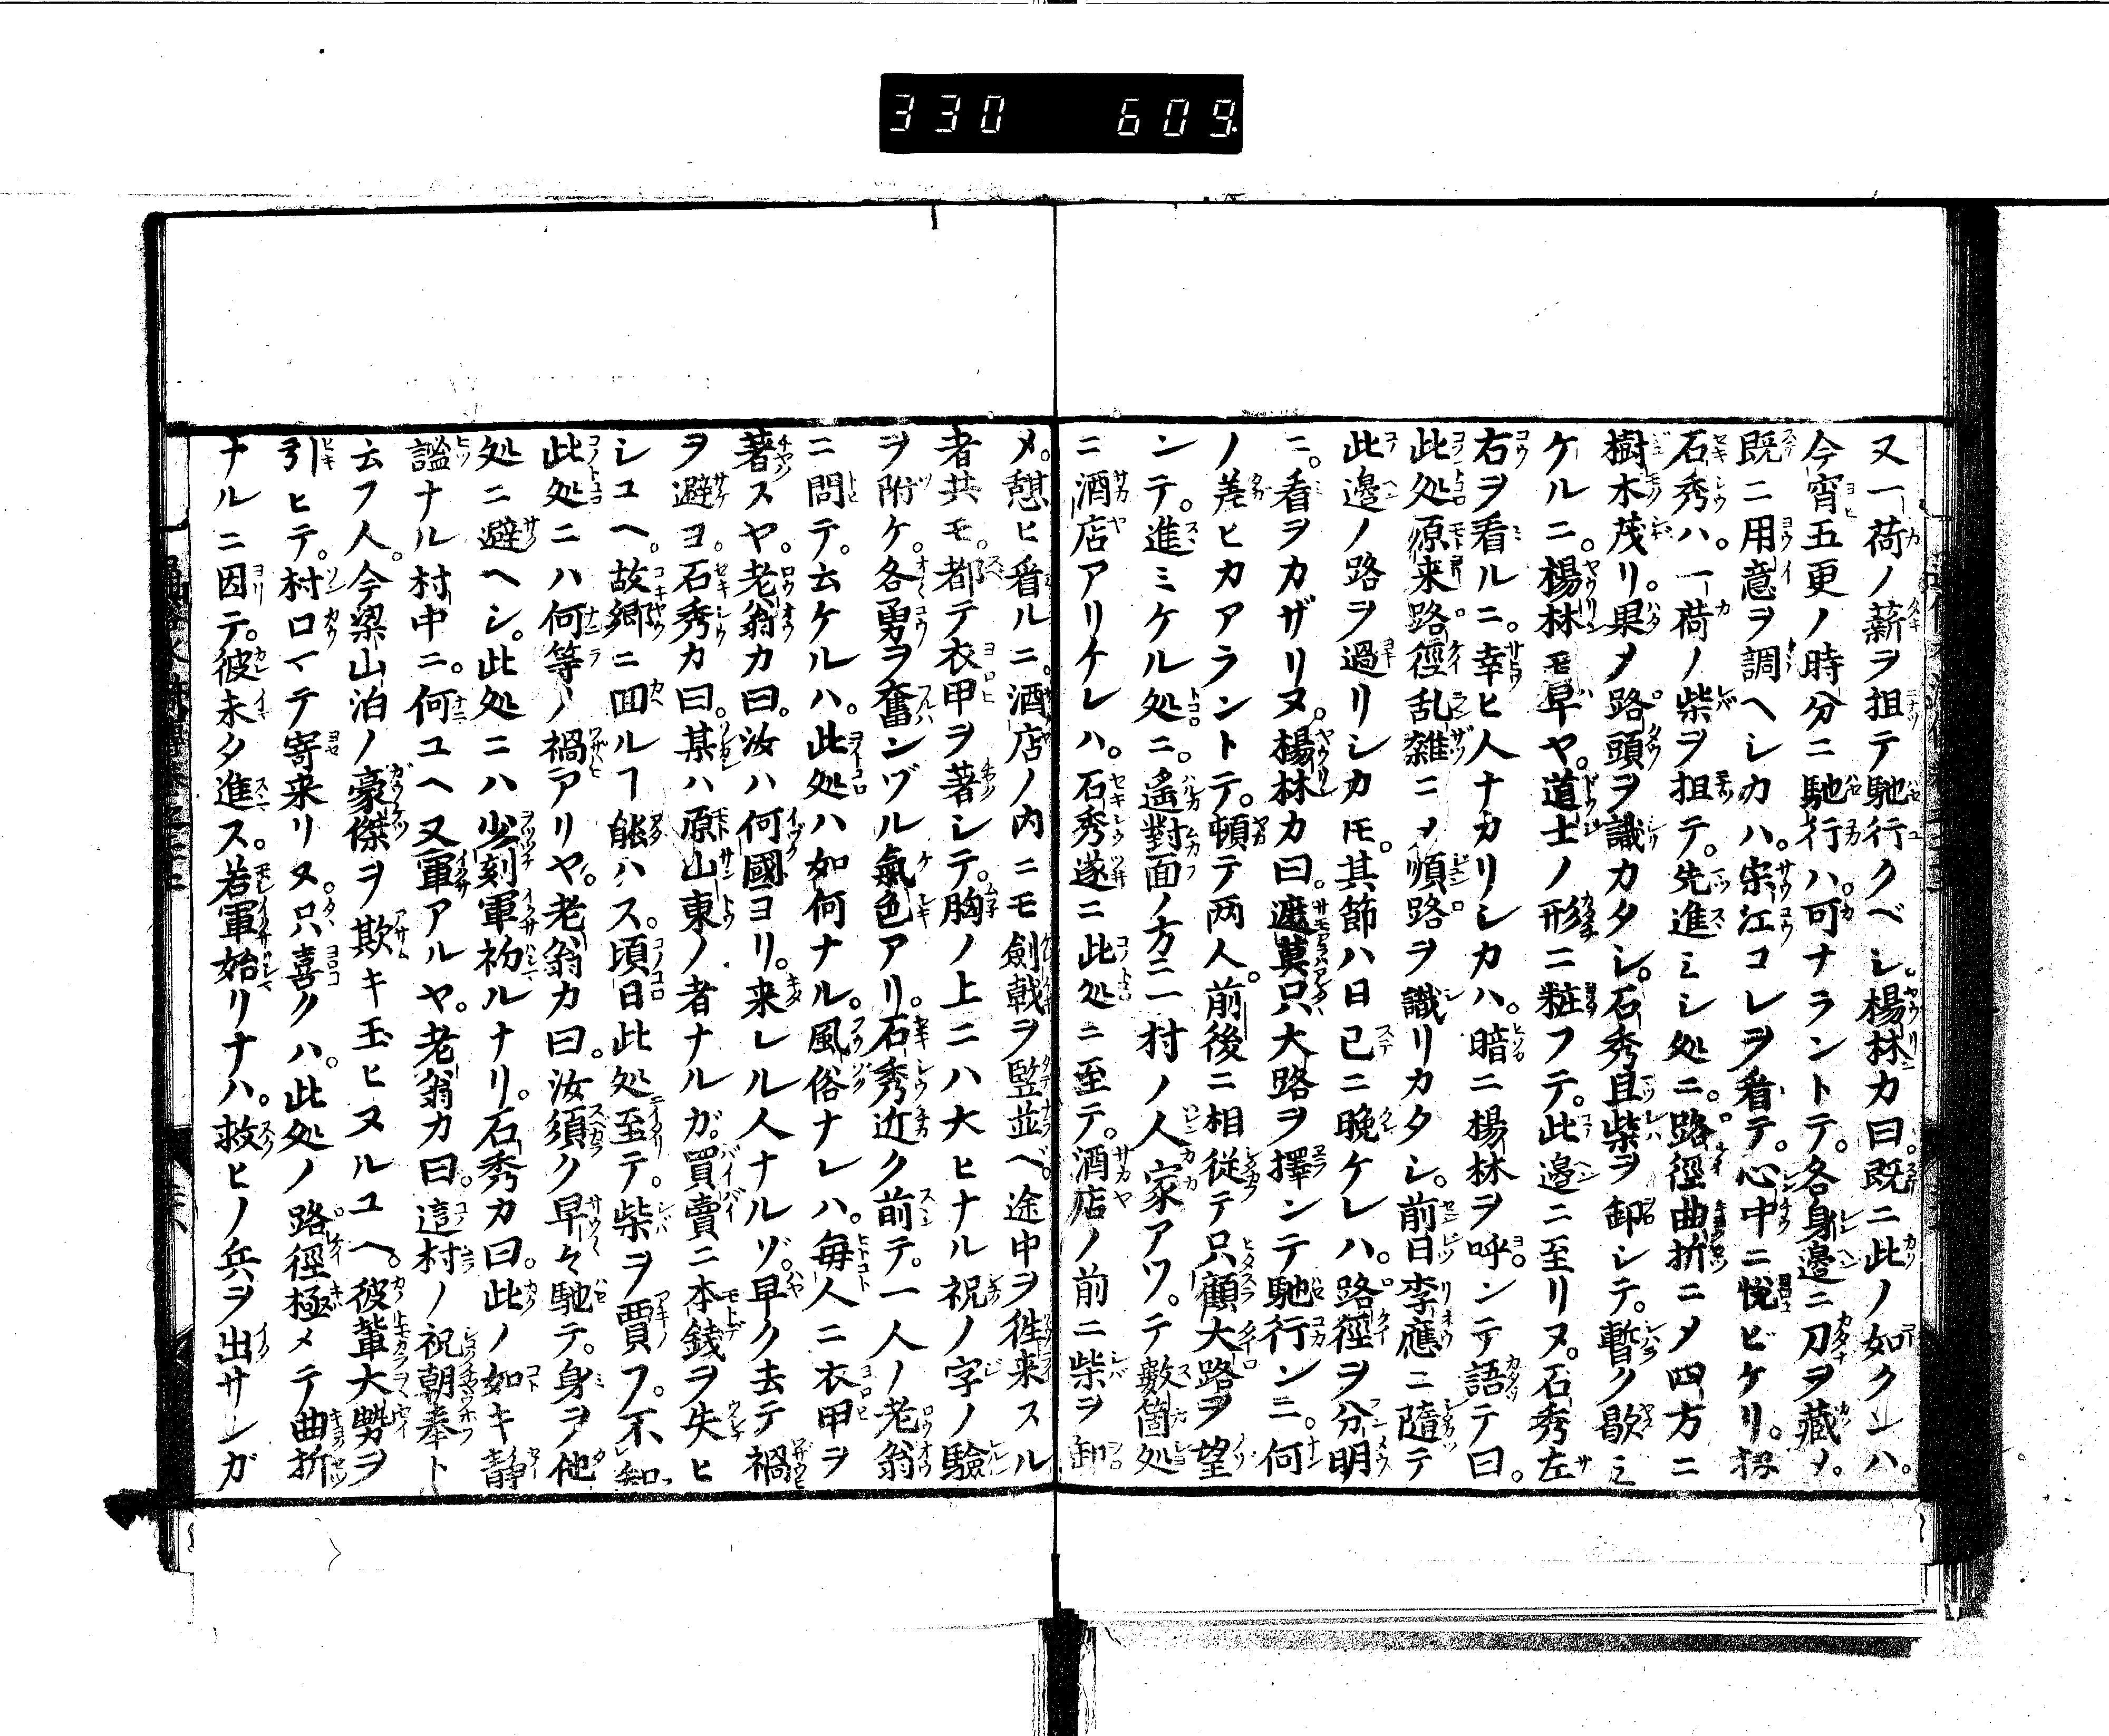 330 609.
又一荷ノ薪ヲ担テ馳行クベシ。楊林カ曰。既ニ此ノ如クンハ。
今宵五更ノ時分ニ馳行ハ。可ナラントテ。各身邊ニ刀ヲ藏メ。
既ニ用意ヲ調ヘシカハ。宗江コレヲ看テ。心中ニ悦ビケリ。扨
石秀ハ。一荷ノ柴ヲ担テ。先進ミシ処ニ。路徑曲折ニメ四方ニ
樹木茂リ。果メ路頭ヲ識カタシ。石秀且柴ヲ卸シテ。暫ク歇ミ
ケルニ。楊林モ早ヤ。道士ノ形ニ粧フテ。此邊ニ至リヌ。石秀左
右ヲ看ルニ。幸ヒ人ナカリシカハ。暗ニ楊林ヲ呼ンテ語テ曰。
此処原来路徑乱雑ニメ順路ヲ識リカタシ。前日李應ニ隨テ
此邊ノ路ヲ過リシカ𪜈。其節ハ日已ニ晩ケレハ。路徑ヲ分明
ニ。看ヲカザリヌ。楊林カ曰。遮莫只大路ヲ擇ンテ馳行ンニ。何
ノ差ヒカアラントテ。頓テ两人。前後ニ相従テ只顧大路ヲ望
ンテ。進ミケル処ニ。遙對面ノ方ニ一村ノ人家アツ。テ數箇処
ニ酒店アリケレハ。石秀遂ニ此処ニ至テ。酒店ノ前ニ柴ヲ卸
メ。憩ヒ看ルニ。酒店ノ内ニモ劍戟ヲ竪並ベ。途中ヲ徃来スル
者共モ。都テ衣甲ヲ著シテ。胸ノ上ニハ大ヒナル祝ノ字ノ驗
ヲ附ケ。各勇ヲ奮ンヅル氣色アリ。石秀近ク前テ。一人ノ老翁
ニ問テ。云ケルハ。此処ハ如何ナル。風俗ナレハ。毎人ニ衣甲ヲ
著スヤ。老翁カ曰。汝ハ何國ヨリ。来レル人ナルゾ。早ク去テ禍
ヲ避ヨ。石秀カ曰。某ハ原山東ノ者ナルガ。買賣ニ本銭ヲ失ヒ
シユヘ。故郷ニ回ルヿ能ハス。頃日此処至テ。柴ヲ賈フ。不知
此処ニハ何等ノ禍アリヤ。老翁カ曰。汝須ク早々馳テ。身ヲ他
処ニ避ヘシ。此処ニハ少刻軍初ルナリ。石秀カ曰。此ノ如キ静
謐ナル村中ニ。何ユヘ又軍アルヤ。老翁カ曰。這村ノ祝朝奉ト
云フ人。今梁山泊ノ豪傑ヲ欺キ玉ヒヌルユヘ。彼輩大勢ヲ
引ヒテ。村口マテ寄来リヌ。只喜クハ。此処ノ路徑極メテ曲折
ナルニ因テ。彼未タ進ス。若軍始リナハ。救ヒノ兵ヲ出サンガ